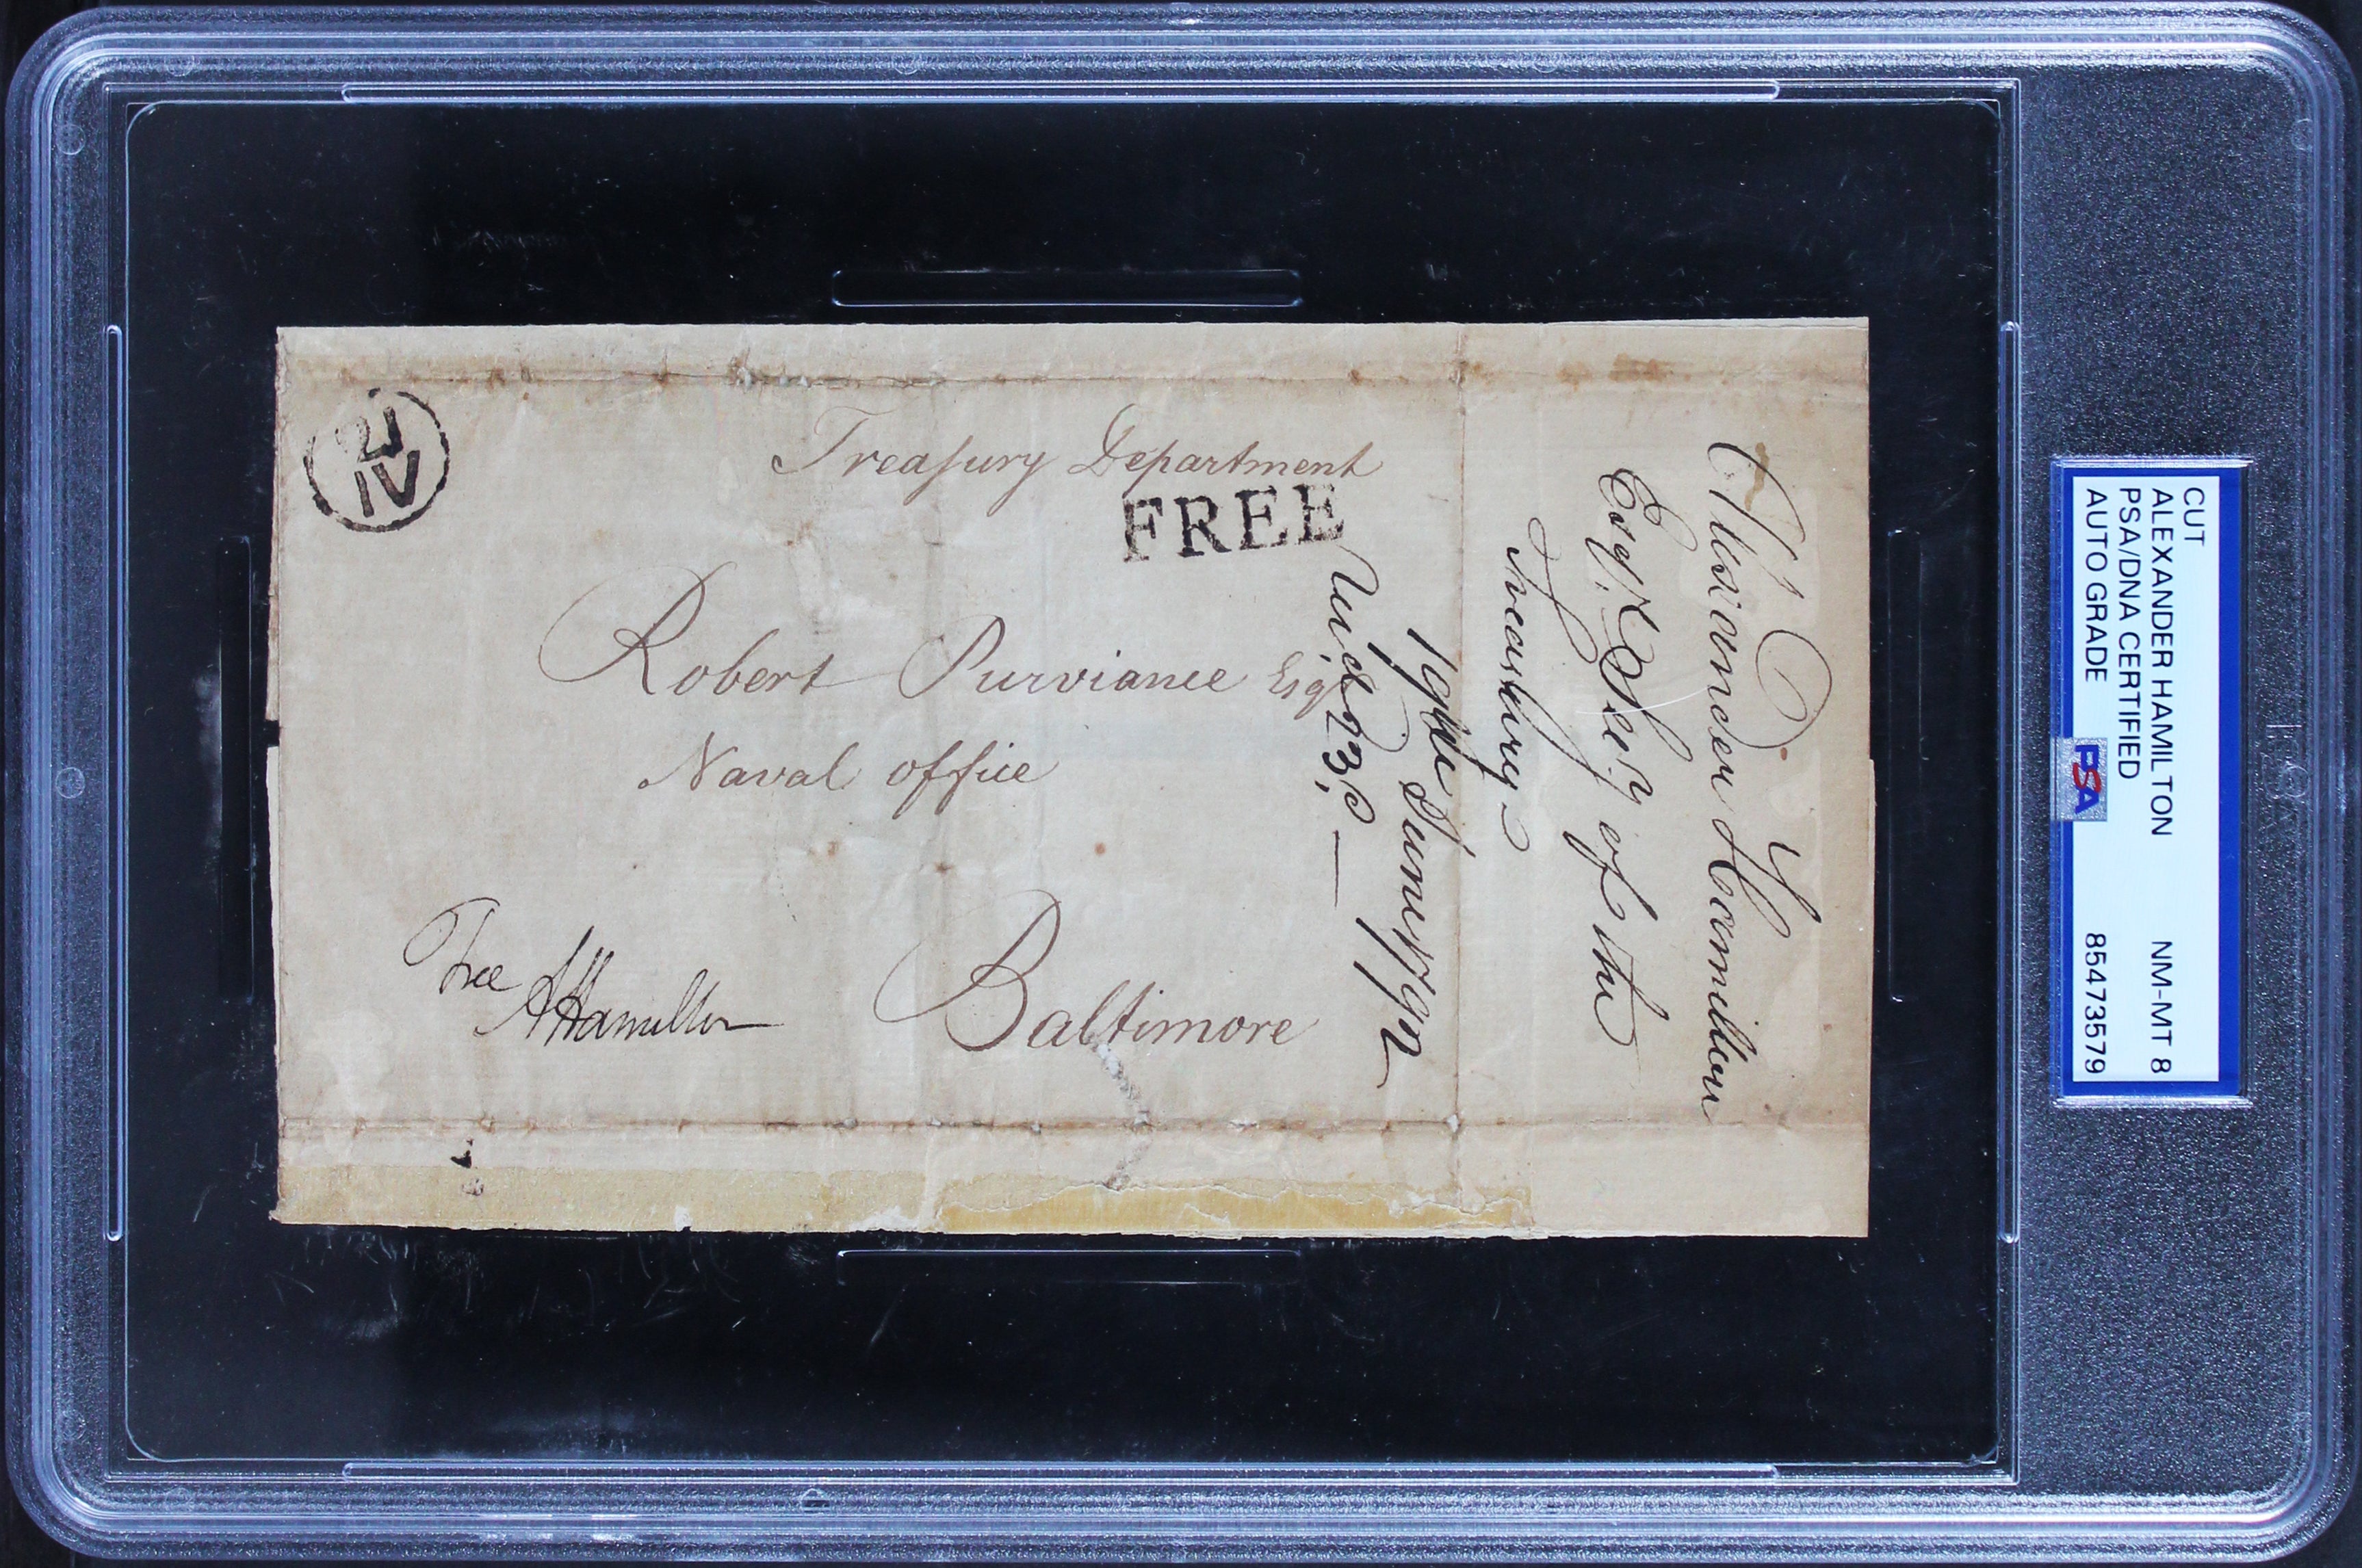 Treasury Department
FREE
Robert Purviance Esqr
Naval office
Baltimore
Free
AHamilton
21
IV
Alexander Hamilton
Esqr. Secy of the
Treasury
19th June 1792
23d
CUT
ALEXANDER HAMILTON NM-MT 8
PSA/DNA CERTIFIED
AUTO GRADE 85473579
PSA